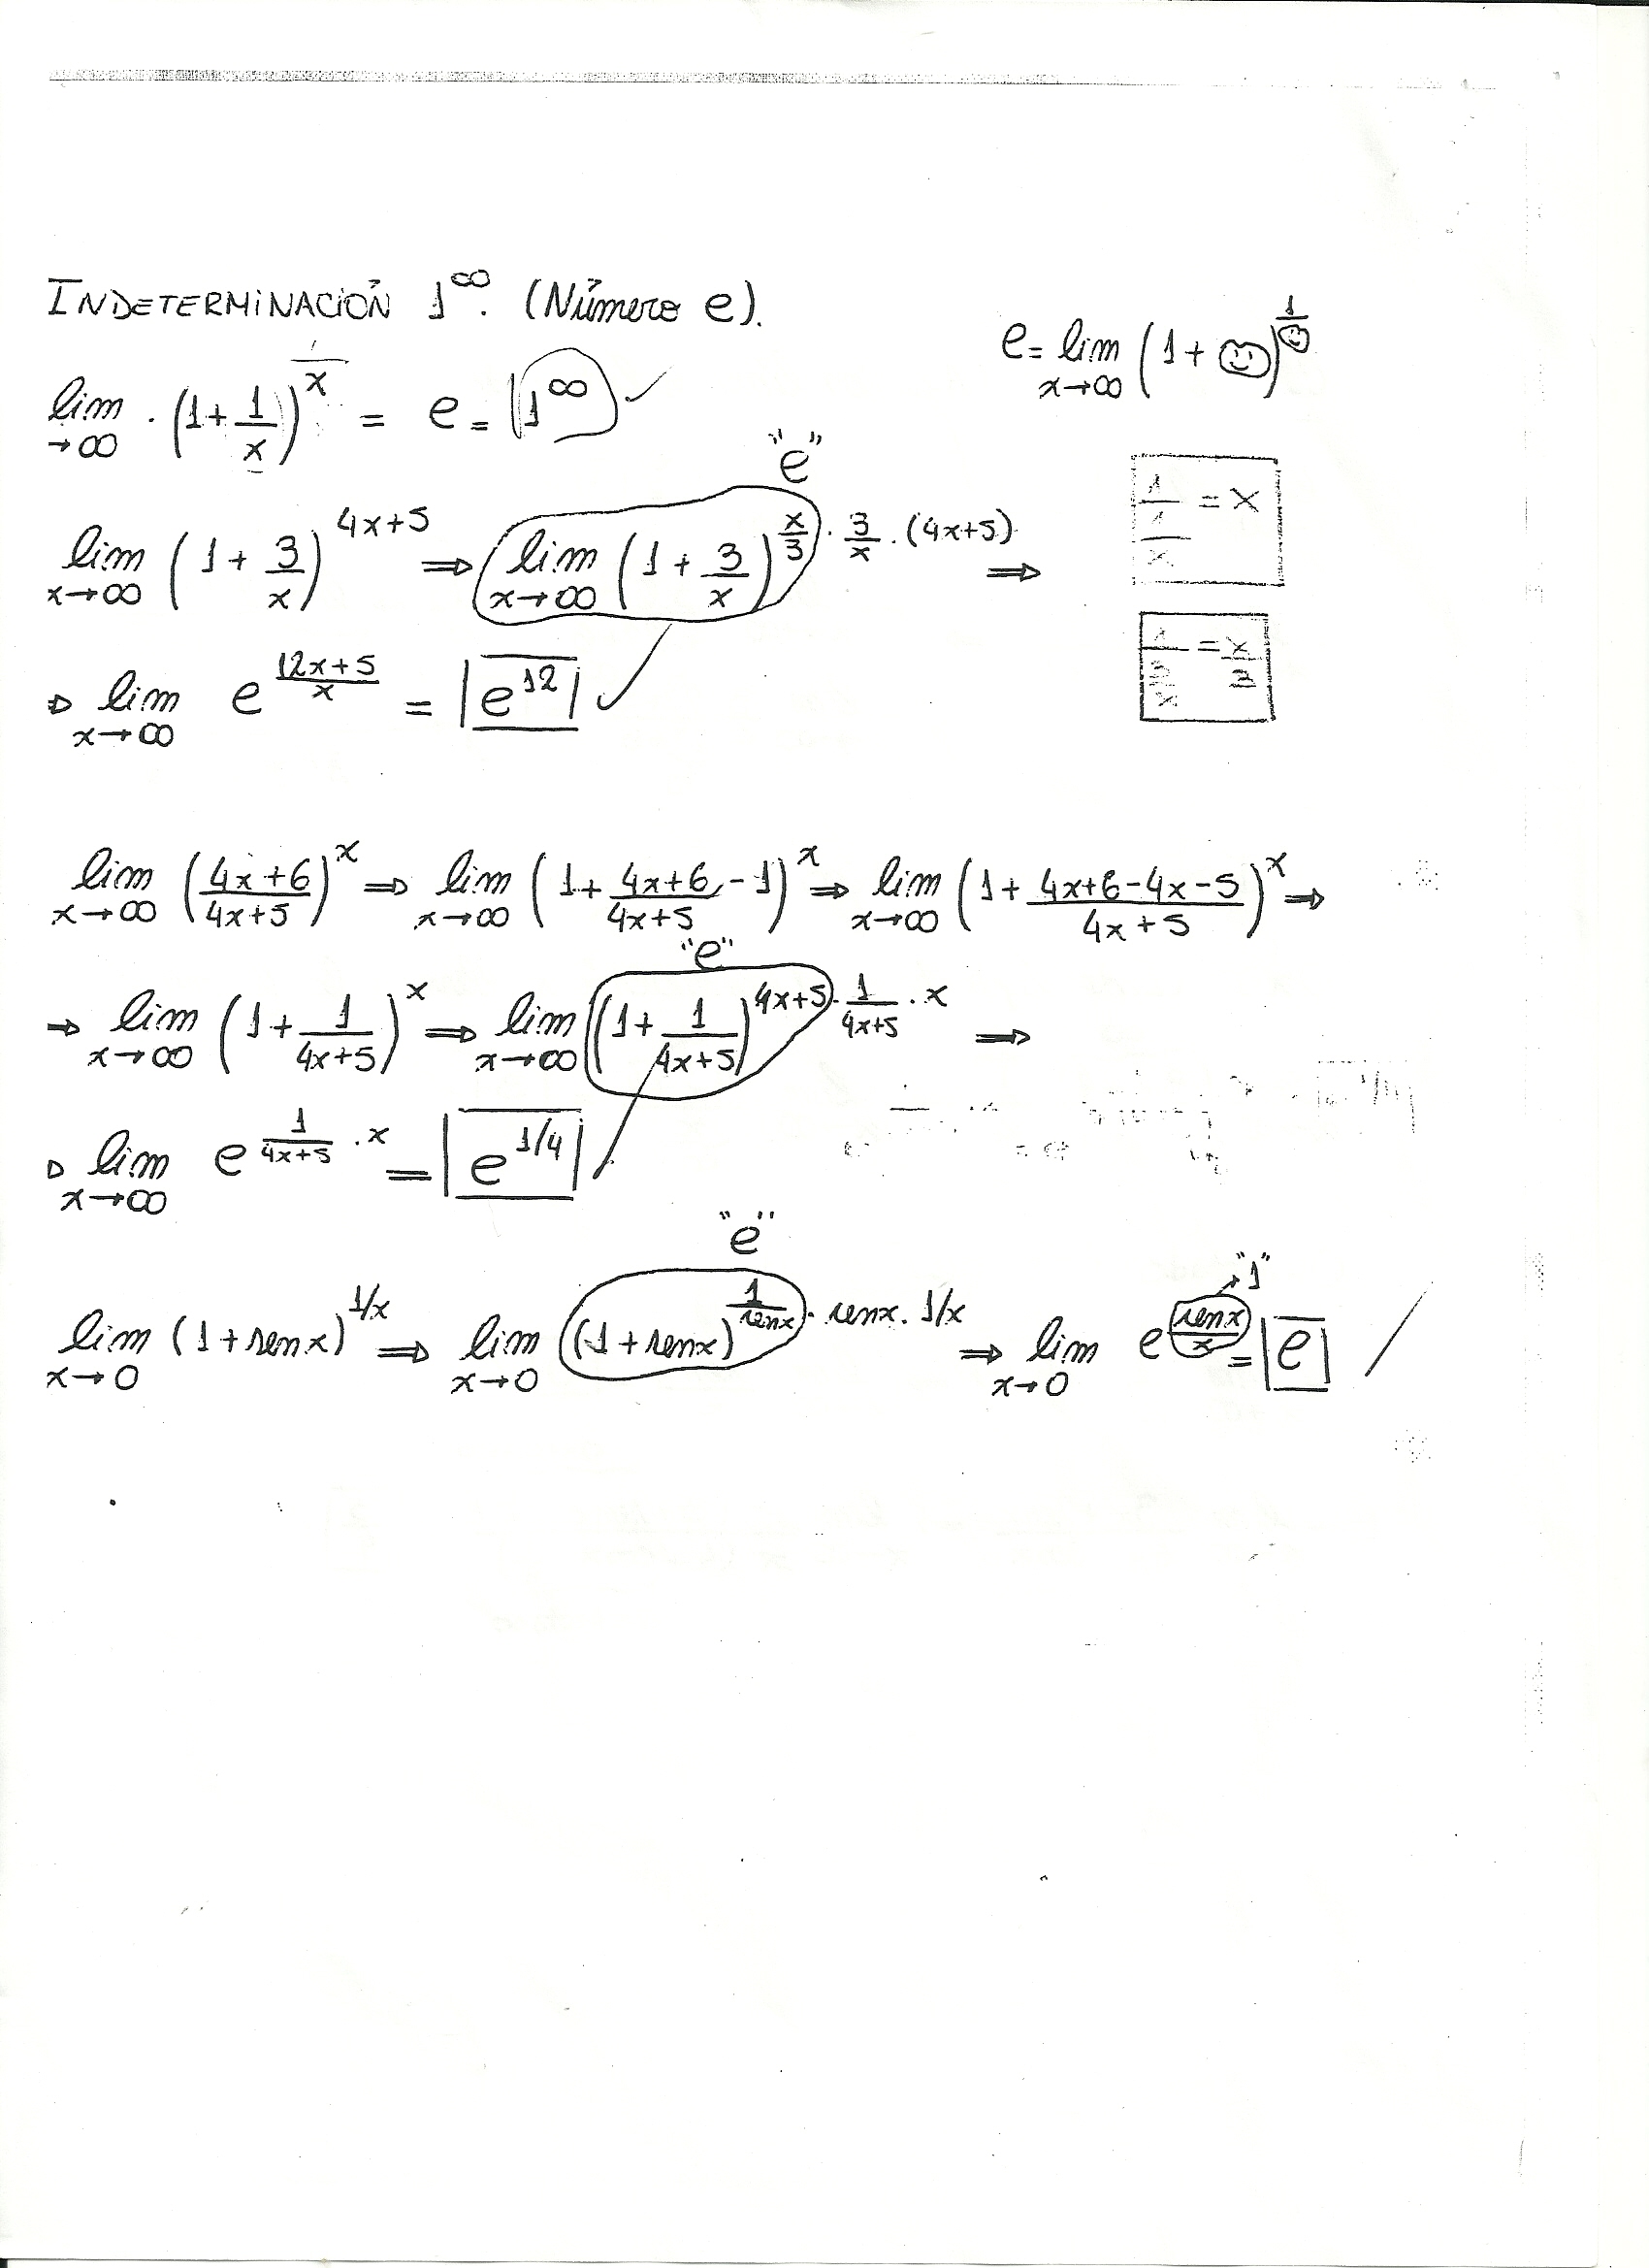 INDETERMINACIÓN 1^∞. (Número e).
e = lim x→∞ (1 + ☺)^(1/☺)
lim →∞ · (1 + 1/x)^x = e = 1^∞ ✓
1/(1/x) = x
"e"
lim x→∞ (1 + 3/x)^(4x+5) ⇒ lim x→∞ (1 + 3/x)^(x/3) · 3/x · (4x+5) ⇒
1/(3/x) = x/3
⇒ lim x→∞ e^((12x+5)/x) = e^12
lim x→∞ ((4x+6)/(4x+5))^x ⇒ lim x→∞ (1 + (4x+6)/(4x+5) - 1)^x ⇒ lim x→∞ (1 + (4x+6-4x-5)/(4x+5))^x ⇒
"e"
⇒ lim x→∞ (1 + 1/(4x+5))^x ⇒ lim x→∞ ((1 + 1/(4x+5))^(4x+5) · 1/(4x+5) · x ⇒
⇒ lim x→∞ e^(1/(4x+5) · x) = e^(1/4)
"e" "1"
lim x→0 (1 + senx)^(1/x) ⇒ lim x→0 (1 + senx)^(1/senx) · senx · 1/x ⇒ lim x→0 e^(senx/x) = e